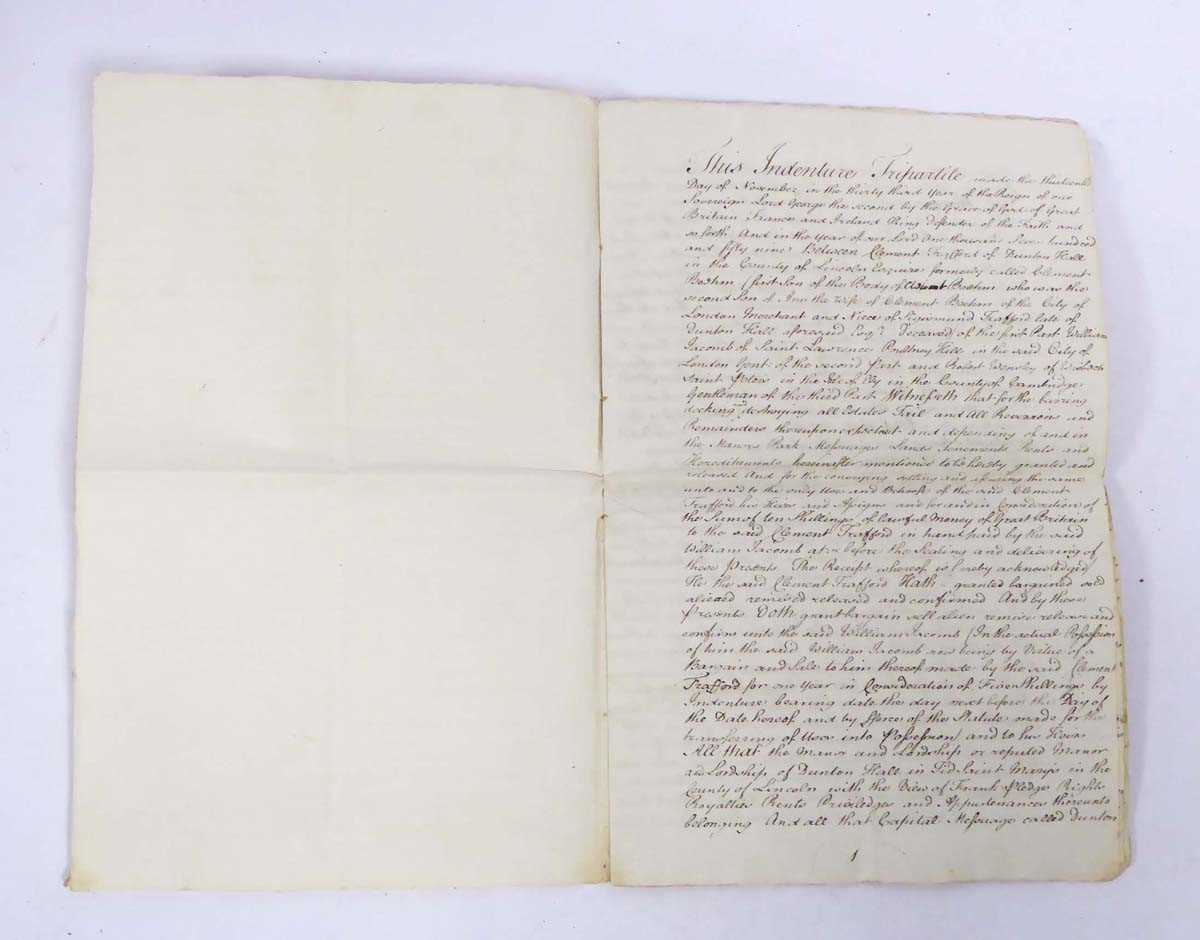 This Indenture Tripartite made the thirteenth
Day of November in the thirty third Year of the Reign of our
Sovereign Lord George the second by the Grace of God of Great
Britain France and Ireland King Defender of the Faith and
so forth And in the Year of our Lord One thousand Seven hundred
and fifty nine Between Clement Trafford of Dunton Hall
in the County of Lincoln Esquire formerly called Clement
Boehm (first Son of the Body of Boehm who was the
second Son of Ann the Wife of Clement Boehm of the City of
London Merchant and Niece of Sigismund Trafford late of
Dunton Hall aforesaid Esqr. Deceased of the first Part William
Jacomb of Saint Lawrence Poultney Hill in the said City of
London Gent of the second Part and Robert of Wisbech
Saint Peters in the Isle of Ely in the County of Cambridge
Gentleman of the third Part Witnesseth that for the barring
docking destroying all Estates Tail and All Reversions and
Remainders thereupon expectant and depending of and in
the Manor Park Messuages Lands Tenements Rents and
Hereditaments hereinafter mentioned to be hereby granted and
released And for the conveying settling and assuring the same
unto and to the only Use and Behoofe of the said Clement
Trafford his Heirs and Assigns and for and in Consideration of
the Sum of ten Shillings of lawful Money of Great Britain
to the said Clement Trafford in hand paid by the said
William Jacomb at or before the Sealing and delivering of
these Presents The Receipt whereof is hereby acknowledged
He the said Clement Trafford Hath granted bargained sold
aliened remised released and confirmed And by these
Presents Doth grant bargain sell alien remise release and
confirm unto the said William Jacomb (In the actual Possession
of him the said William Jacomb now being by Virtue of a
Bargain and Sale to him thereof made by the said Clement
Trafford for one Year in Consideration of Five Shillings by
Indenture bearing date the day next before the Day of
the Date hereof and by force of the Statute made for the
transferring of Uses into Possession) and to his Heirs
All that the Manor and Lordship or reputed Manor
and Lordship of Dunton Hall in Tid Saint Marys in the
County of Lincoln with the View of Frank Pledge Rights
Royalties Rents Priviledges and Appurtenances thereunto
belonging And all that Capital Messuage called Dunton
1